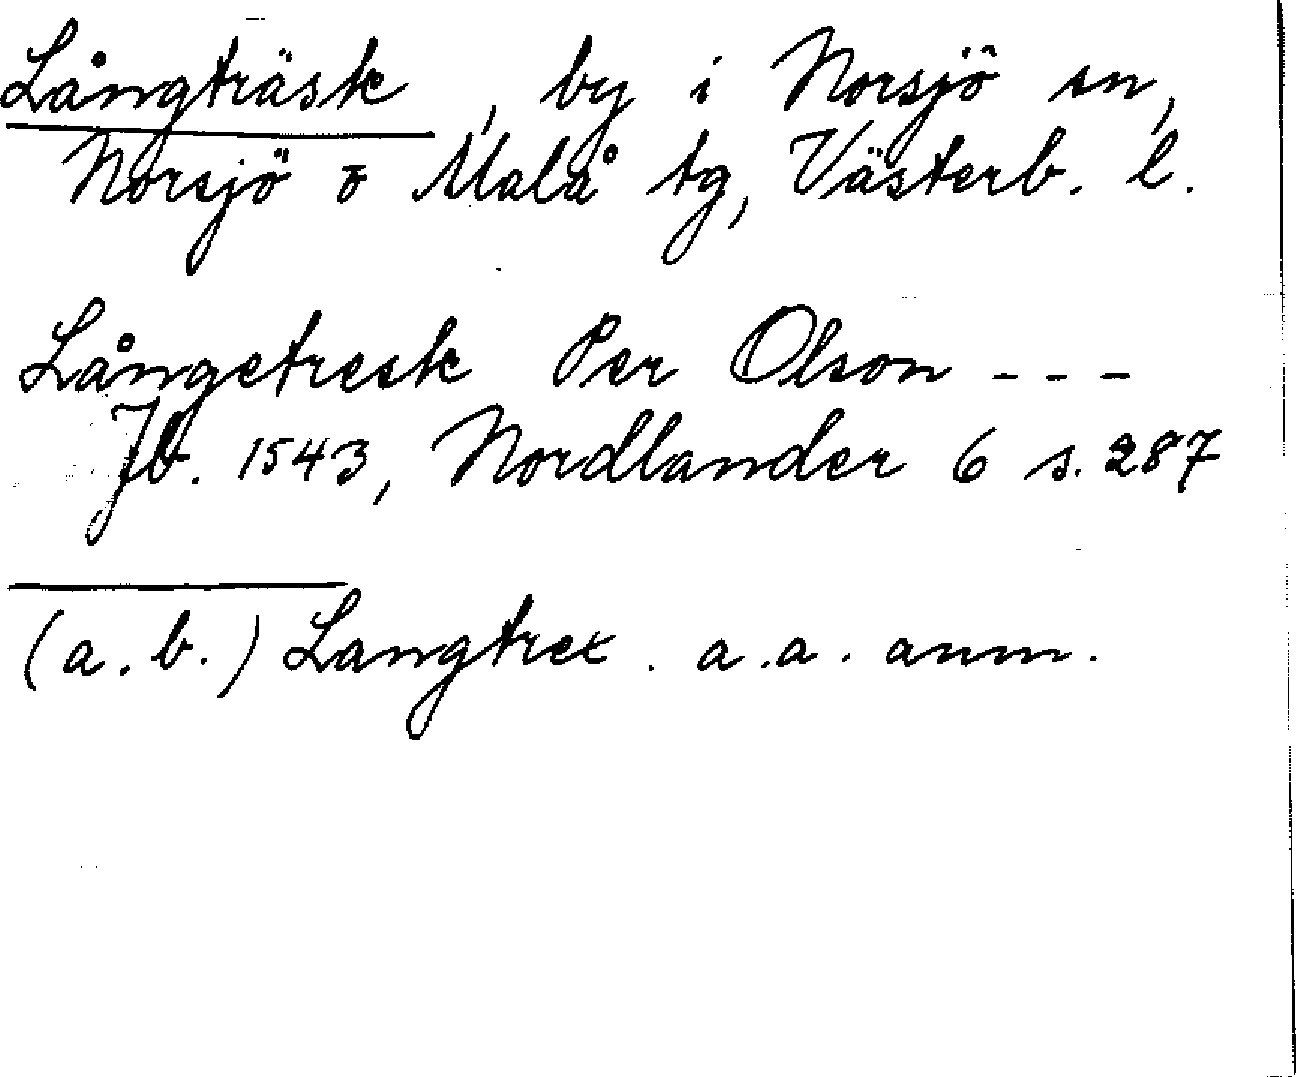 Långträsk, by i Norsjö sn,
Norsjö o Malå tg, Västerb. l.
Långetresk Per Olson - - -
Jb. 1543, Nordlander 6 s. 287
(a. b.) Langtrex. a. a. anm.